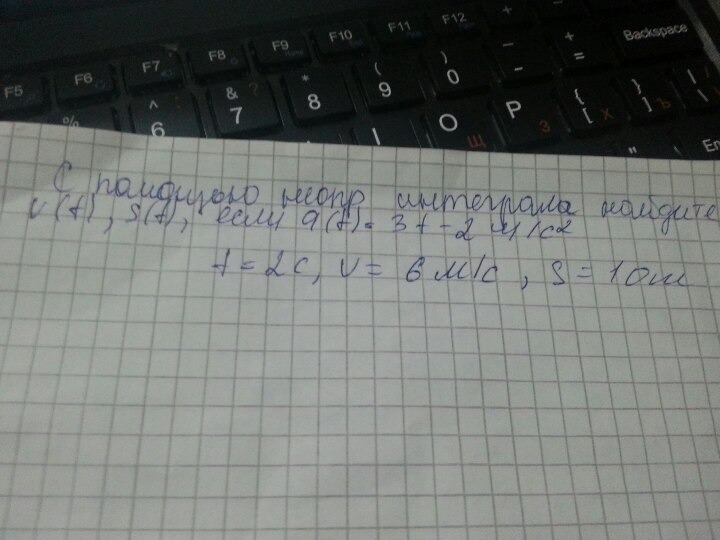 F5 F6 F7 F8 F9 F10 F11 F12 +
% ^ 6 & 7 ? * 8 ( 9 ) 0 _ - + = Backspace
O Щ P З { [ Х } ] Ъ
" En
С помощью неопр интеграла найдите
v(t), s(t), если a(t) = 3t - 2 м/с²
t = 2с, v = 6 м/с, s = 10м